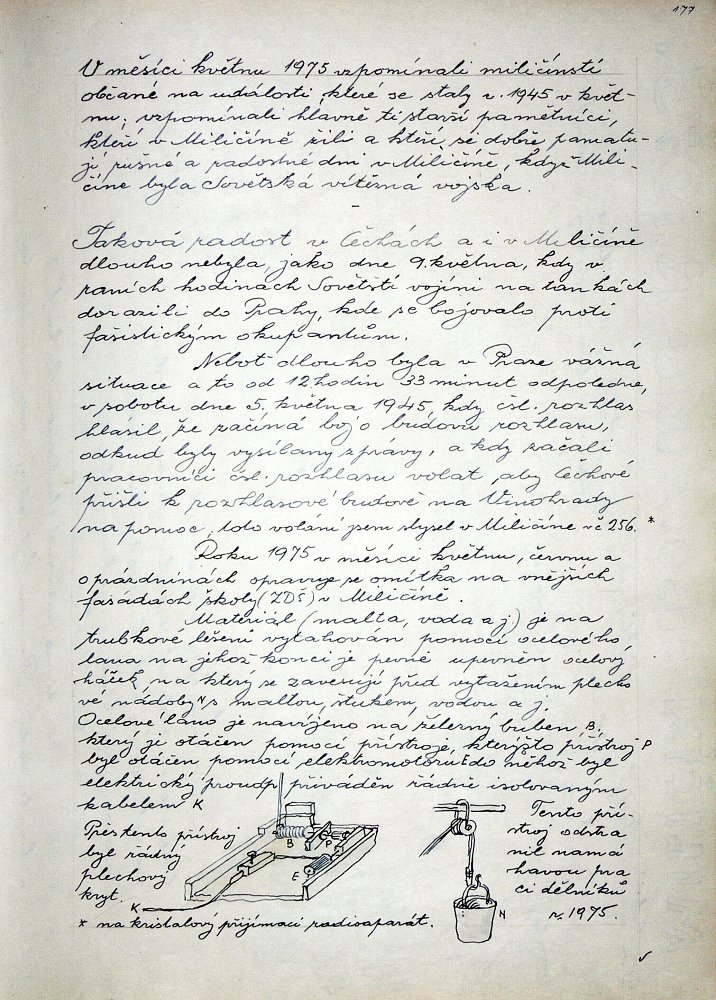 177
V měsíci květnu 1975 vzpomínali miličínstí
občané na události, které se staly r. 1945 v květ-
nu; vzpomínali hlavně ti starší pamětníci,
kteří v Miličíně žili a kteří se dobře pamatu-
jí rušné a radostné dni v Miličíně, když v Mili-
číne byla Sovětská vítězná vojska.
-
Taková radost v Čechách a i v Miličíně
dlouho nebyla, jako dne 9. května, kdy v
raních hodinách Sovětstí vojíni na tankách
dorazili do Prahy, kde se bojovalo proti
fašistickým okupantům.
Neboť dlouho byla v Praze vážná
situace a to od 12 hodin 33 minut odpoledne,
v sobotu dne 5. května 1945, kdy čsl. rozhlas
hlásil, že začíná boj o budovu rozhlasu,
odkud byly vysílany zprávy, a kdy začali
pracovníci čsl. rozhlasu volat, aby Čechové
přišli k rozhlasové budově na Vinohrady
na pomoc, toto volání jsem slyšel v Miličíne v č 256. *
Roku 1975 v měsíci květnu, červnu a
o prázdninách opravuje se omítka na vnějších
fasádách školy (ZDŠ) v Miličíně.
Materiál (malta, voda a j.) je na
trubkové lešení vytahován pomocí ocelového
lana na jehož konci je pevně upevněn ocelový
háček, na který se zavěsují před vytažením plecho
vé nádoby N s maltou, štukem, vodou a j.
Ocelové lano je navíjeno na železný buben B,
který je otáčen pomocí přístroje, kterýžto přístroj P
byl otáčen pomocí elektromotoru E do něhož byl
elektrický proud přiváděn řádně isolovaným
kabelem K
Přes tento přístroj
byl řádný
plechový
kryt.
B
P
E
K
N
Tento pří-
stroj odstra
nil namá
havou pra
ci dělníků
r. 1975.
* na kristalový přijímací radioaparát.